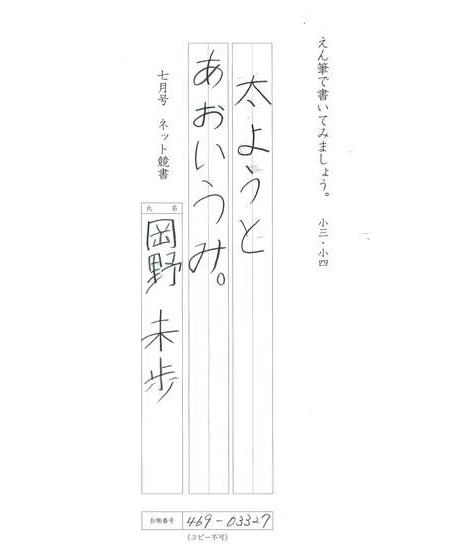 えん筆で書いてみましょう。 小三・小四
太ようと
あおいうみ。
七月号 ネット競書
氏名
岡野 未歩
台帳番号 469-03327
(コピー不可)